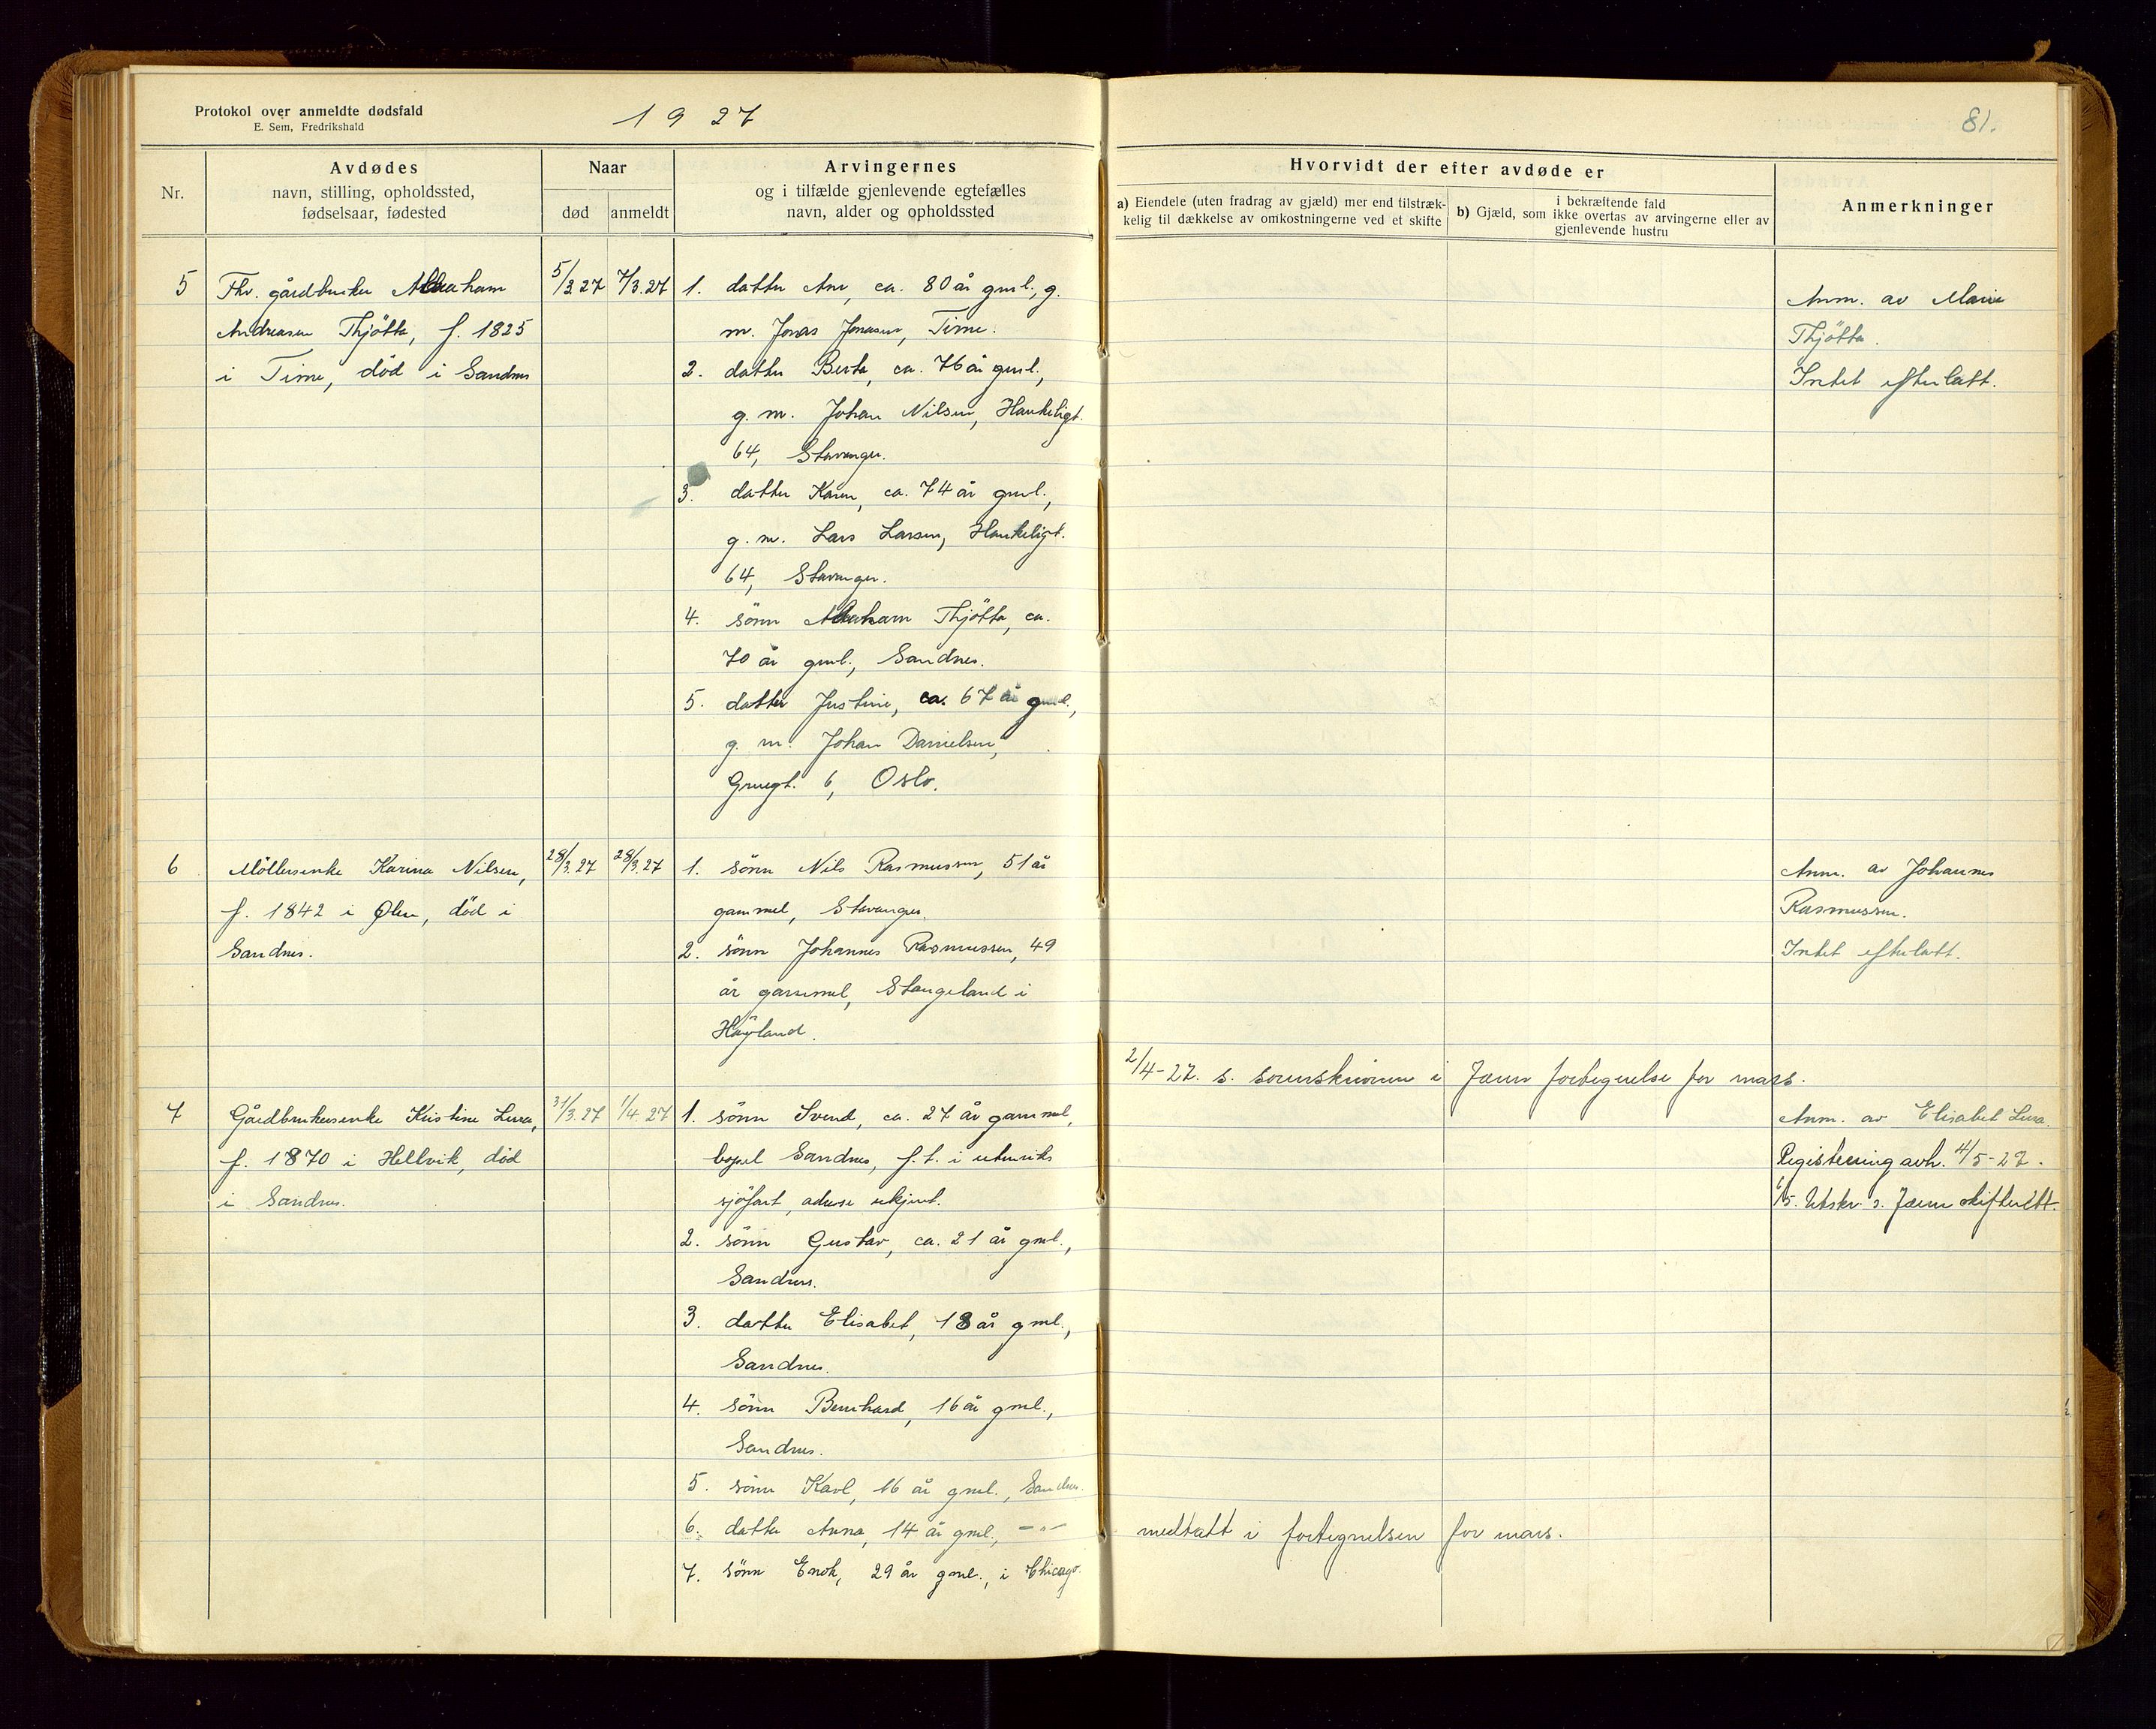 Protokol over anmeldte dødsfald
E. Sem, Fredrikshald
1927
81.
Nr.
Avdødes
navn, stilling, opholdssted,
fødselsaar, fødested
Naar
død
anmeldt
Arvingernes
og i tilfælde gjenlevende egtefælles
navn, alder og opholdssted
Hvorvidt der efter avdøde er
a) Eiendele (uten fradrag av gjæld) mer end tilstræk-
kelig til dækkelse av omkostningerne ved et skifte
i bekræftende fald
b) Gjæld, som ikke overtas av arvingerne eller av
gjenlevende hustru
Anmerkninger
5
Fhv. gårdbruker Abraham
Andreasen Thjötta, f. 1825
i Time, död i Sandnes
5/3.27
7/3.27
1. datter Ane, ca. 80 år gml., g.
m. Jonas Jonasen, Time.
2. datter Berta, ca. 76 år gml.,
g. m. Johan Nilsen, Haukeligt.
64, Stavanger.
3. datter Karen, ca. 74 år gml.,
g. m. Lars Larsen, Haukeligt.
64, Stavanger.
4. sönn Abraham Thjötta, ca.
70 år gml., Sandnes.
5. datter Justine, ca. 67 år gml.,
g. m. Johan Danielsen,
6, Oslo.
Anm. av Marie
Thjötta.
Intet efterlatt.
6
Möllerenke Karina Nilsen,
f. 1842 i Ølen, död i
Sandnes.
28/3.27
28/3.27
1. sönn Nils Rasmussen, 51 år
gammel, Stavanger.
2. sönn Johannes Rasmussen, 49
år gammel, Stangeland i
Höyland.
Anm. av Johannes
Rasmussen.
Intet efterlatt.
2/4-27. s. sorenskriveren i Jæren fortegnelse for mars.
7
Gårdbrukerenke Kristine Lura,
f. 1870 i Hellvik, död
i Sandnes.
31/3.27
1/4.27
1. sönn Svend, ca. 27 år gammel,
bopel Sandnes, f.t. i utenriks
sjöfart, adresse ukjent.
2. sönn Gustav, ca. 21 år gml.,
Sandnes.
3. datter Elisabet, 18 år gml.,
Sandnes.
4. sönn Bernhard, 16 år gml.,
Sandnes.
5. sönn Karl, 16 år gml., Sandnes.
6. datter Anna, 14 år gml., —"—
7. sönn Enok, 29 år gml., i Chicago.
Anm. av Elisabet Lura.
Registrering avh. 4/5-27.
Utskr. s. Jæren skifterett.
medtatt i fortegnelsen for mars.